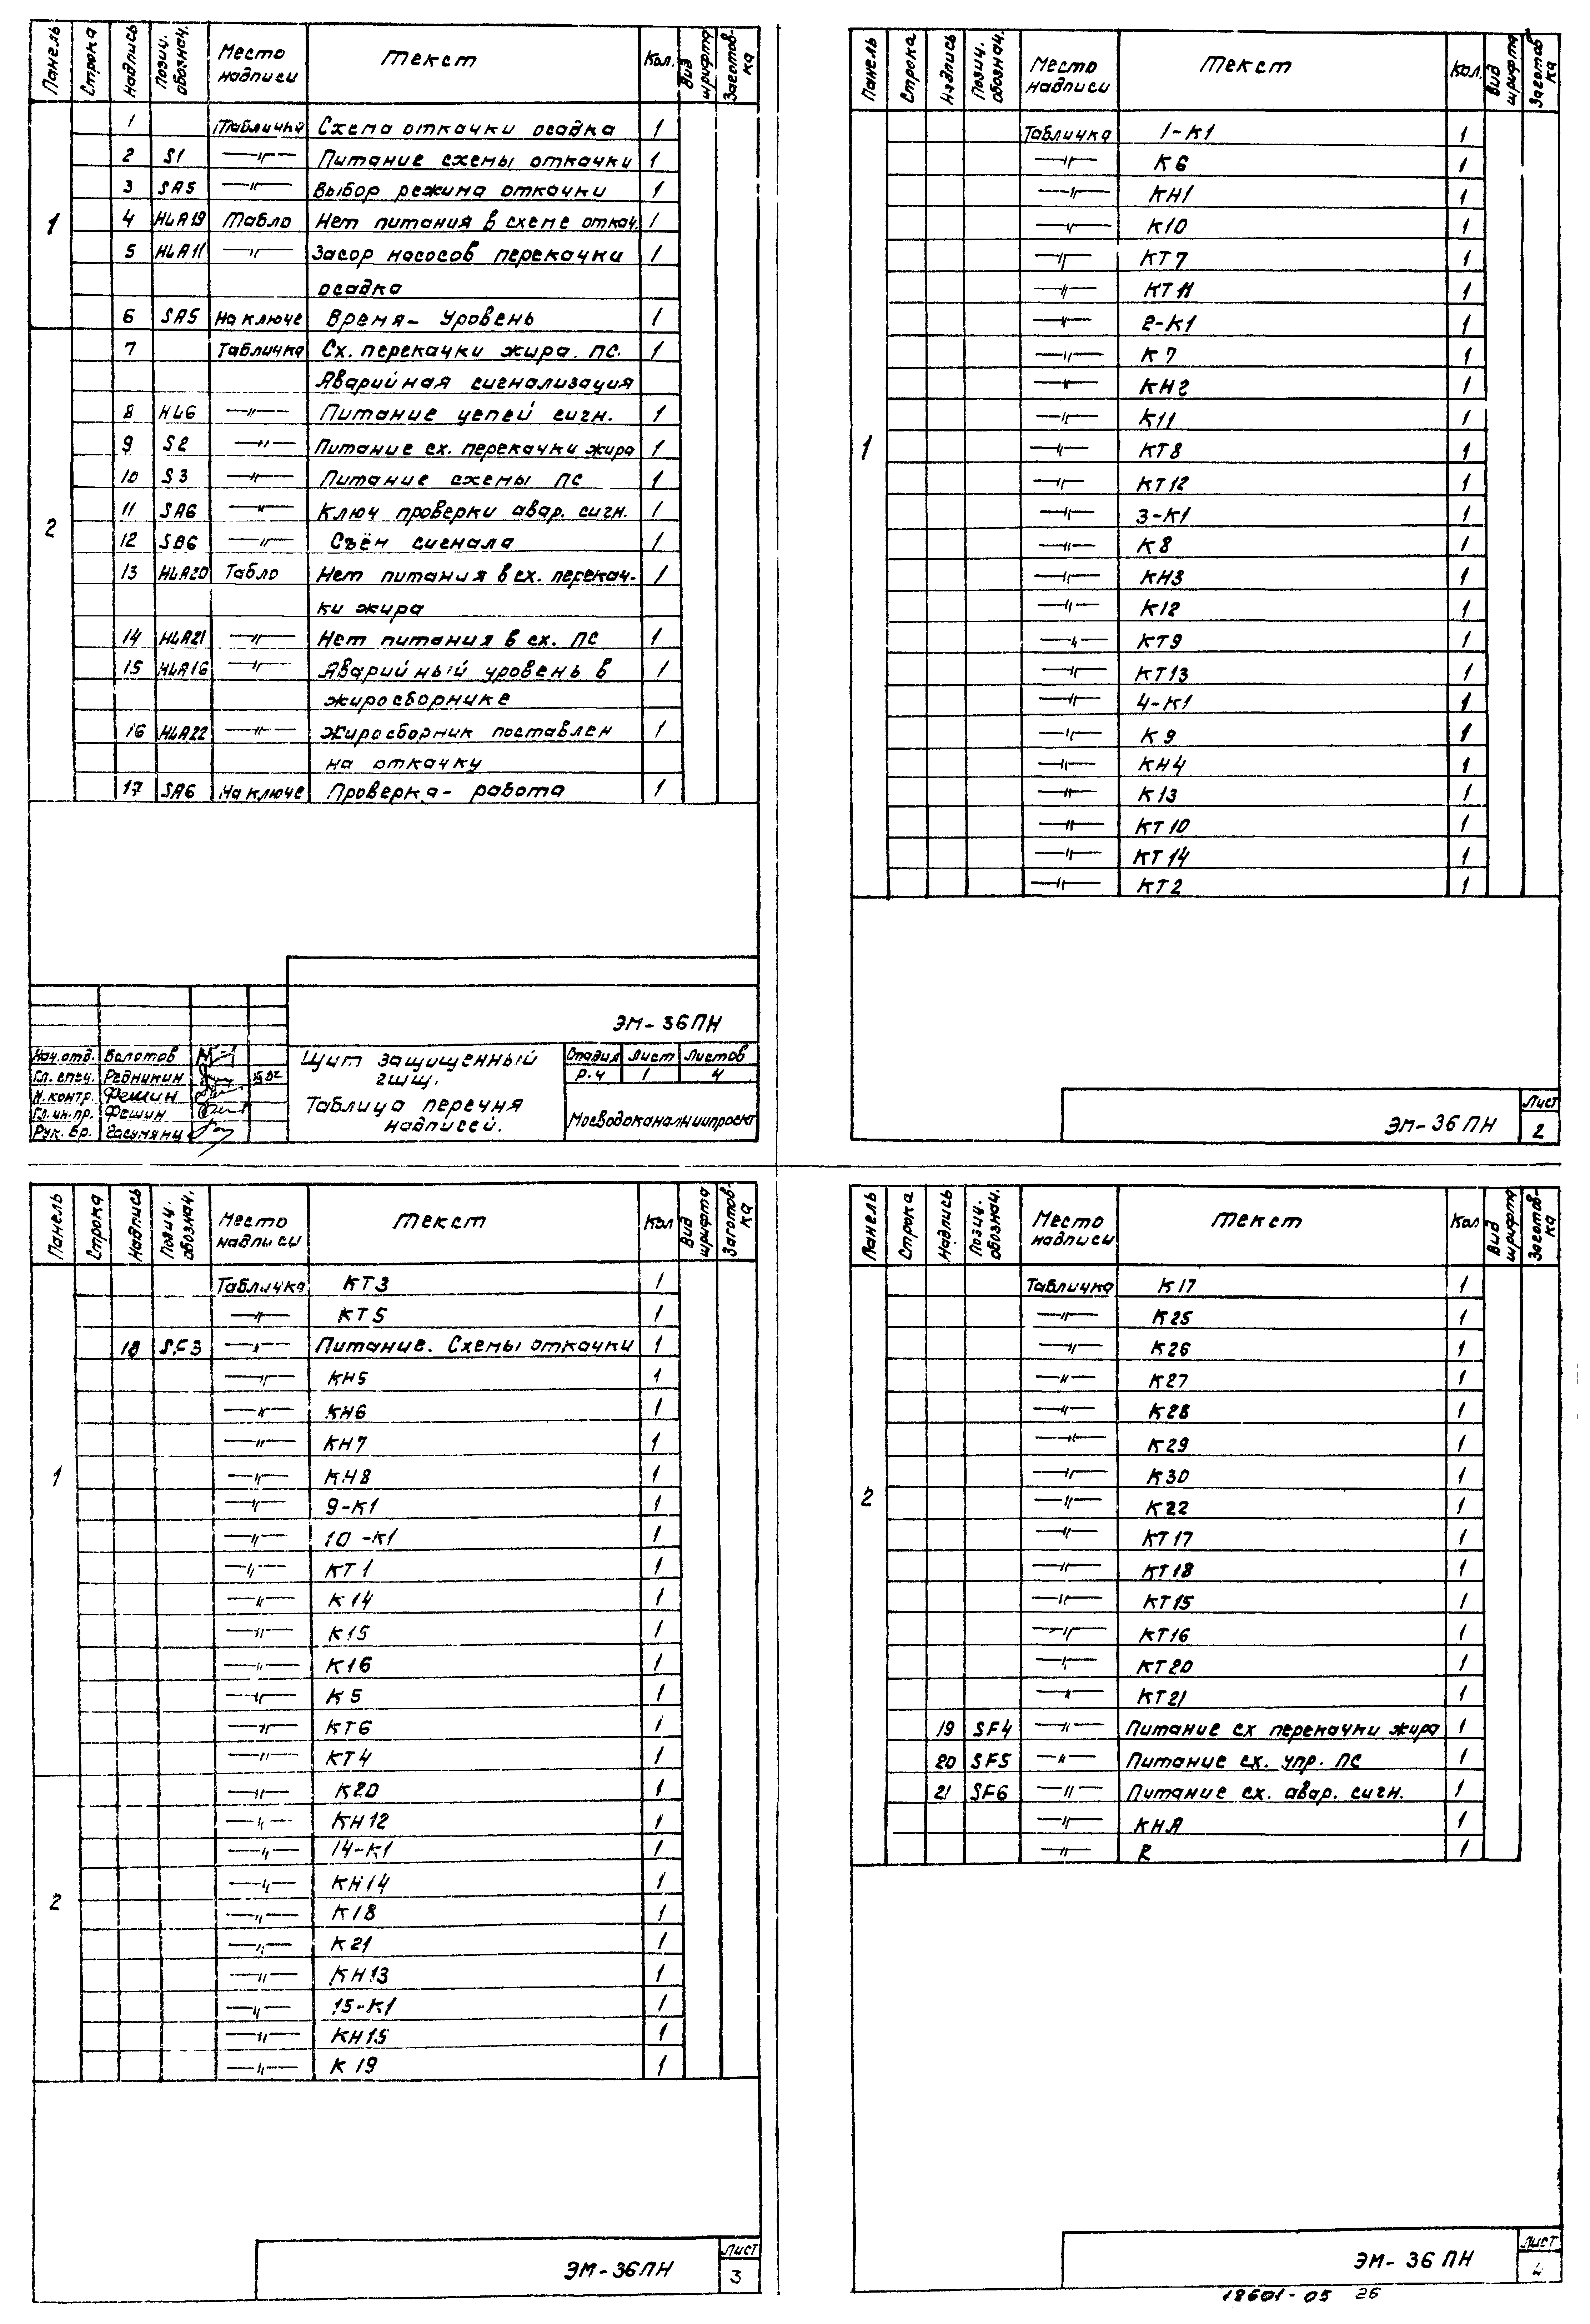 Панель Строка Надпись Позиц. обознач. Место надписи Текст Кол. Вид шрифта Заготов-ка
1
1 Табличка Схема откачки осадка 1
2 S1 —〃— Питание схемы откачки 1
3 SA5 —〃— Выбор режима откачки 1
4 HLA19 Табло Нет питания в схеме откач. 1
5 HLA11 —〃— Засор насосов перекачки 1
осадка
6 SA5 На ключе Время- Уровень 1
2
7 Табличка Сх. перекачки жира. ПС. 1
Аварийная сигнализация
8 HL6 —〃— Питание цепей сигн. 1
9 S2 —〃— Питание сх. перекачки жира 1
10 S3 —〃— Питание схемы ПС 1
11 SA6 —〃— Ключ проверки авар. сигн. 1
12 SB6 —〃— Съём сигнала 1
13 HLA20 Табло Нет питания в сх. перекач- 1
ки жира
14 HLA21 —〃— Нет питания в сх. ПС 1
15 HLA16 —〃— Аварийный уровень в 1
жиросборнике
16 HLA22 —〃— Жиросборник поставлен 1
на откачку
17 SA6 На ключе Проверка- работа 1
ЭМ-36ПН
Нач.отд. Болотов
Гл. спец. Редникин
Н.контр. Фешин
Гл.ин.пр. Фешин
Рук. бр.
Щит защищенный
2ЩЩ.
Таблица перечня
надписей.
Стадия Лист Листов
Р.Ч 1 4
Мосводоканалниипроект
Панель Строка Надпись Позиц. обознач. Место надписи Текст Кол. Вид шрифта Заготов-ка
1
Табличка 1-К1 1
—〃— К6 1
—〃— КН1 1
—〃— К10 1
—〃— КТ7 1
—〃— КТ11 1
—〃— 2-К1 1
—〃— К7 1
—〃— КН2 1
—〃— К11 1
—〃— КТ8 1
—〃— КТ12 1
—〃— 3-К1 1
—〃— К8 1
—〃— КН3 1
—〃— К12 1
—〃— КТ9 1
—〃— КТ13 1
—〃— 4-К1 1
—〃— К9 1
—〃— КН4 1
—〃— К13 1
—〃— КТ10 1
—〃— КТ14 1
—〃— КТ2 1
ЭМ-36ПН
Лист
2
Панель Строка Надпись Позиц. обознач. Место надписи Текст Кол Вид шрифта Заготов-ка
1
Табличка КТ3 1
—〃— КТ5 1
18 SF3 —〃— Питание. Схемы откачки 1
—〃— КН5 1
—〃— КН6 1
—〃— КН7 1
—〃— КН8 1
—〃— 9-К1 1
—〃— 10-К1 1
—〃— КТ1 1
—〃— К14 1
—〃— К15 1
—〃— К16 1
—〃— К5 1
—〃— КТ6 1
—〃— КТ4 1
2
—〃— К20 1
—〃— КН12 1
—〃— 14-К1 1
—〃— КН14 1
—〃— К18 1
—〃— К21 1
—〃— КН13 1
—〃— 15-К1 1
—〃— КН15 1
—〃— К19 1
ЭМ-36ПН
Лист
3
Панель Строка Надпись Позиц. обознач. Место надписи Текст Кол Вид шрифта Заготов-ка
2
Табличка К17 1
—〃— К25 1
—〃— К26 1
—〃— К27 1
—〃— К28 1
—〃— К29 1
—〃— К30 1
—〃— К22 1
—〃— КТ17 1
—〃— КТ18 1
—〃— КТ15 1
—〃— КТ16 1
—〃— КТ20 1
—〃— КТ21 1
19 SF4 —〃— Питание сх перекачки жира 1
20 SF5 —〃— Питание сх. упр. ПС 1
21 SF6 —〃— Питание сх. авар. сигн. 1
—〃— КНА 1
—〃— R 1
ЭМ-36 ПН
Лист
4
18601-05 26